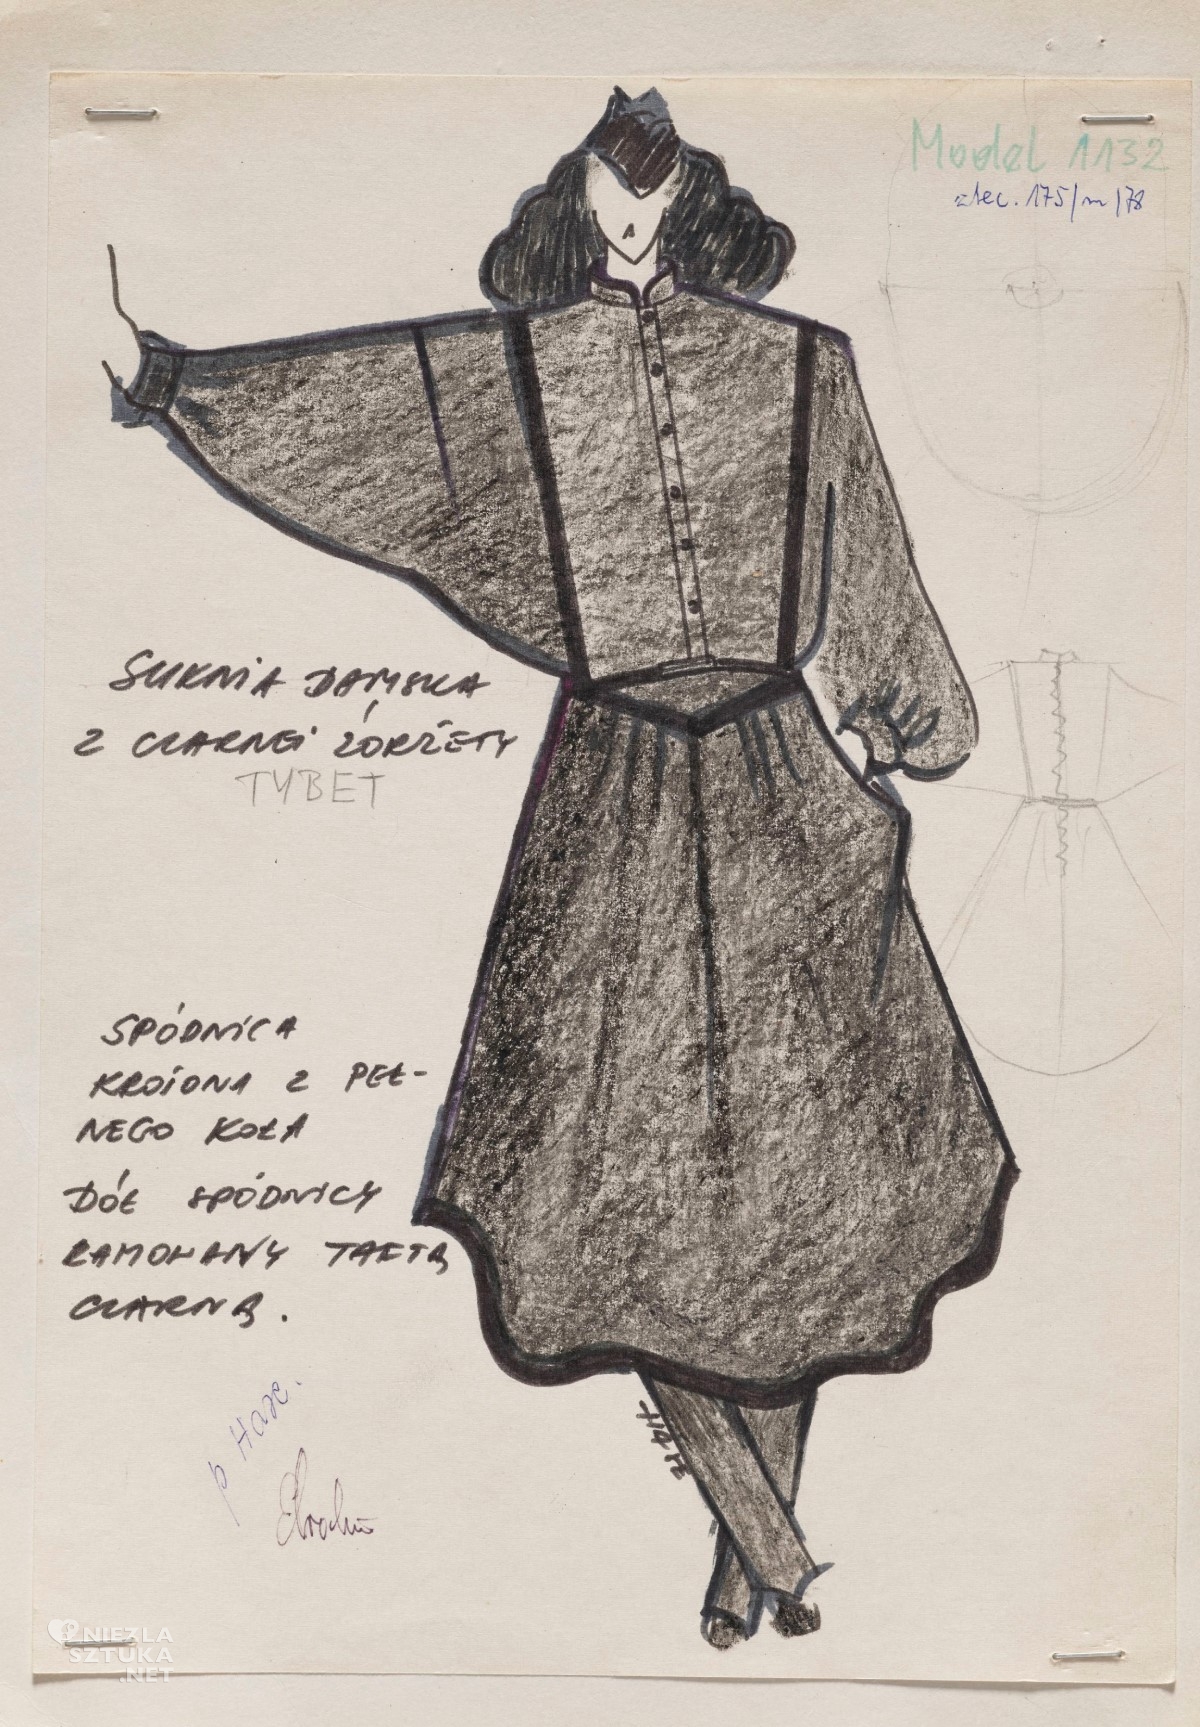 Model 1132
zlec. 175/m/78
SUKNIA DAMSKA
Z CZARNEJ ŻORŻETY
TYBET
SPÓDNICA
KROJONA Z PEŁ-
NEGO KOŁA
DÓŁ SPÓDNICY
RAMOWANY TAFTĄ
CZARNĄ.
p Hase.
HASE
NIEZLA
SZTUKA
.NET